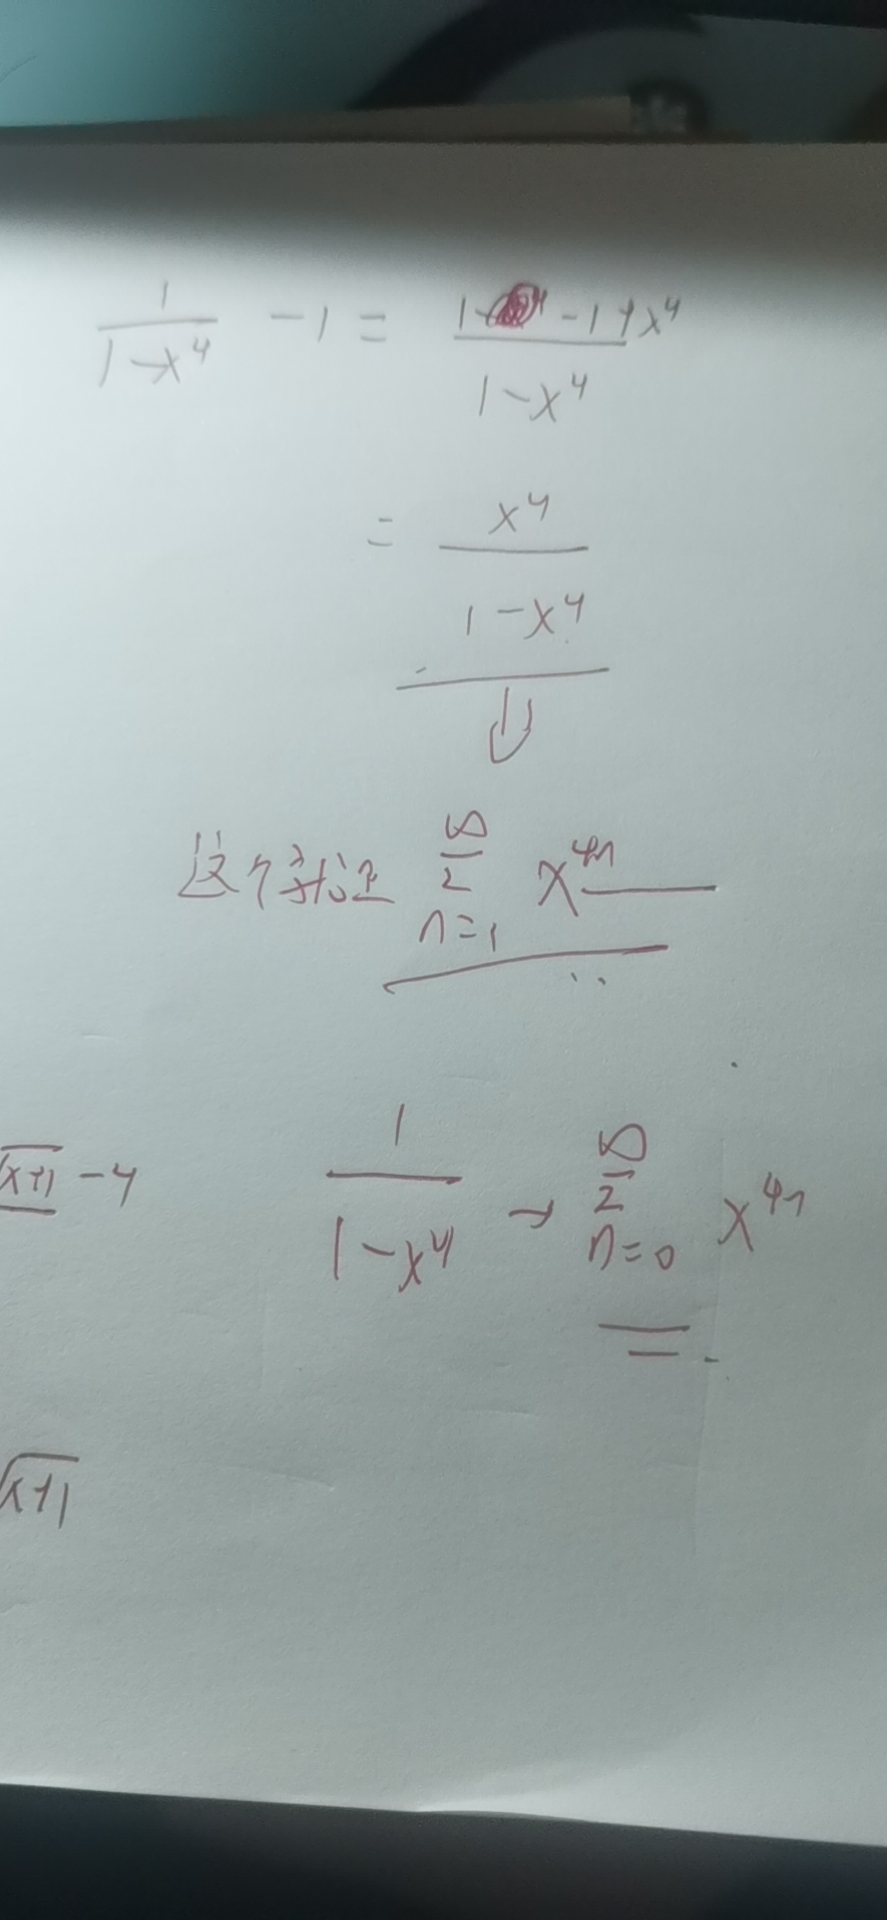 1/(1-x⁴) - 1 = (1 - 1 + x⁴)/(1-x⁴)
= x⁴/(1-x⁴)
这个就是 ∞ Σ n=1 x⁴ⁿ
√x+1 - 4
1/(1-x⁴) → ∞ Σ n=0 x⁴ⁿ
√x+1